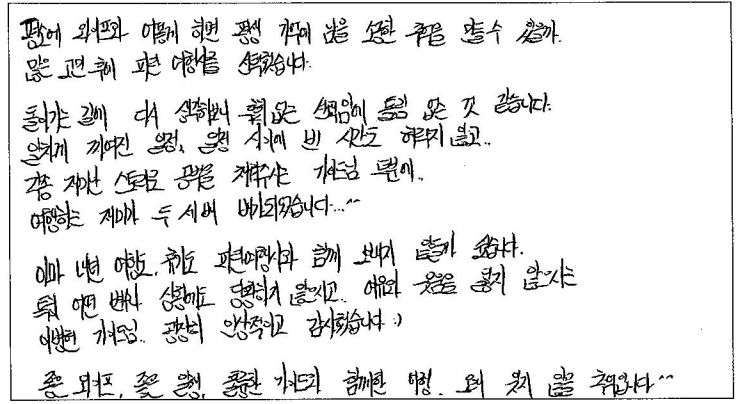 평소에 와이프와 어떻게 하면 평생 기억에 남을 소중한 추억을 만들 수 있을까.
많은 고민 후에 파란 여행사를 선택했습니다.
돌아가는 길에 다시 생각해보니 후회 없는 선택임에 틀림 없는 것 같습니다.
알차게 짜여진 일정, 일정 사이에 빈 시간도 허락치 않고..
각종 재미난 스토리로 공백을 채워주시는 가이드님 덕분에..
여행하는 재미가 두 세배 배가되었습니다...^^
아마 내년 여행도, 휴가도 파란여행사와 함께 보내지 않을까 싶습니다.
특히 어떤 변수 상황에도 당황하지 않으시고.. 여유와 웃음을 잃지 않으시는
이병헌 가이드님.. 굉장히 인상적이고 감사했습니다 :)
좋은 와이프, 좋은 일정, 훌륭한 가이드와 함께한 여행. 오래 잊지 않을 추억입니다^^